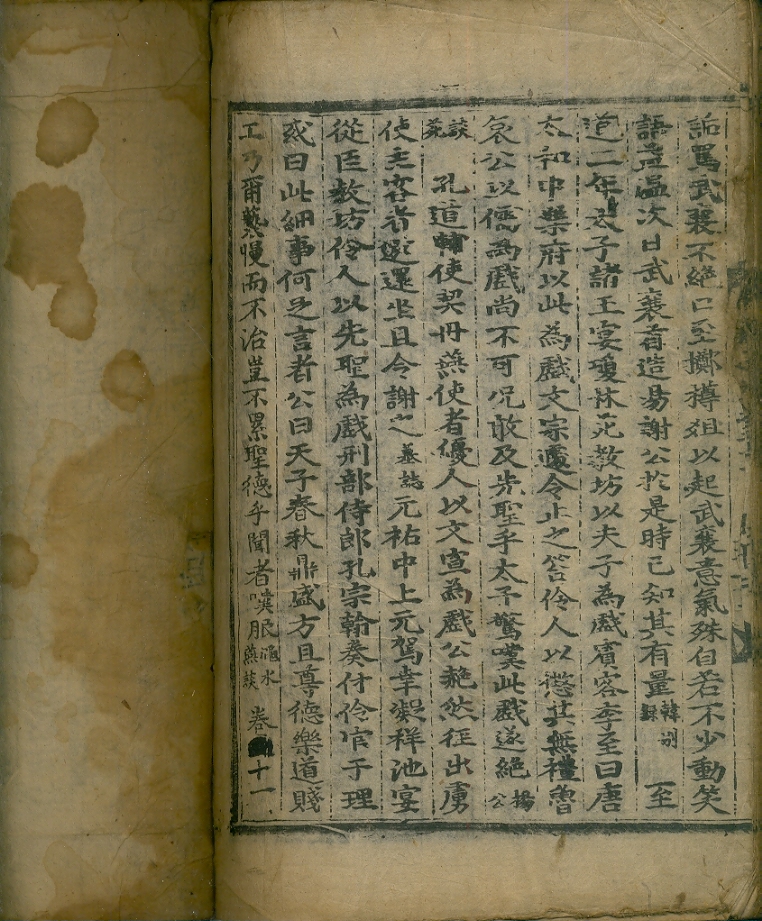 詬罵武襄不絕口至擲樽爼以起武襄意氣殊自若不少動笑
語益溫次日武襄首造易謝公於是時已知其有量韓別錄 至
道二年太子諸王宴瓊林苑教坊以夫子為戲賓客李至曰唐
太和中樂府以此為戲文宗遽令止之笞伶人以懲其無禮魯
哀公以儒為戲尚不可況敢及先聖乎太子驚嘆此戲遂絕楊公
談苑 孔道輔使契丹燕使者優人以文宣為戲公艴然徑出虜
使主客者邀還坐且令謝之墓誌元祐中上元駕幸凝祥池宴
從臣教坊伶人以先聖為戲刑部侍郎孔宗翰奏付伶官于理
或曰此細事何足言者公曰天子春秋鼎盛方且尊德樂道賤
工乃爾褻慢而不治豈不累聖德乎聞者嘆服澠水燕談 卷十一